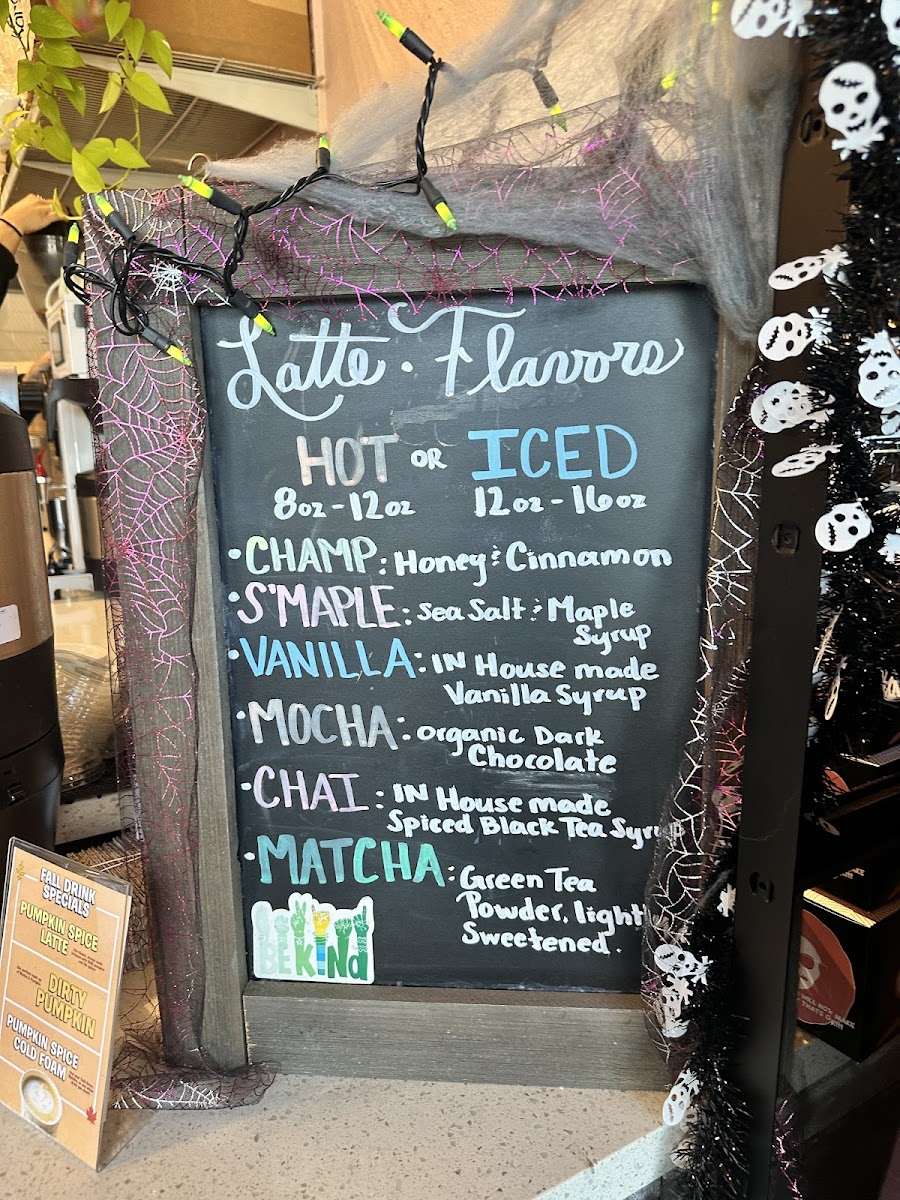 Latte · Flavors
HOT OR ICED
8oz - 12oz 12oz - 16oz
• CHAMP: Honey & Cinnamon
• S'MAPLE: Sea Salt & Maple
Syrup
• VANILLA: IN House made
Vanilla Syrup
• MOCHA: Organic Dark
Chocolate
• CHAI: IN House made
Spiced Black Tea Syrup
• MATCHA: Green Tea
Powder, light
Sweetened.
BE KiNd
FALL DRINK
SPECIALS
PUMPKIN SPICE
LATTE
DIRTY
PUMPKIN
PUMPKIN SPICE
COLD FOAM
WILL NOW MAKE